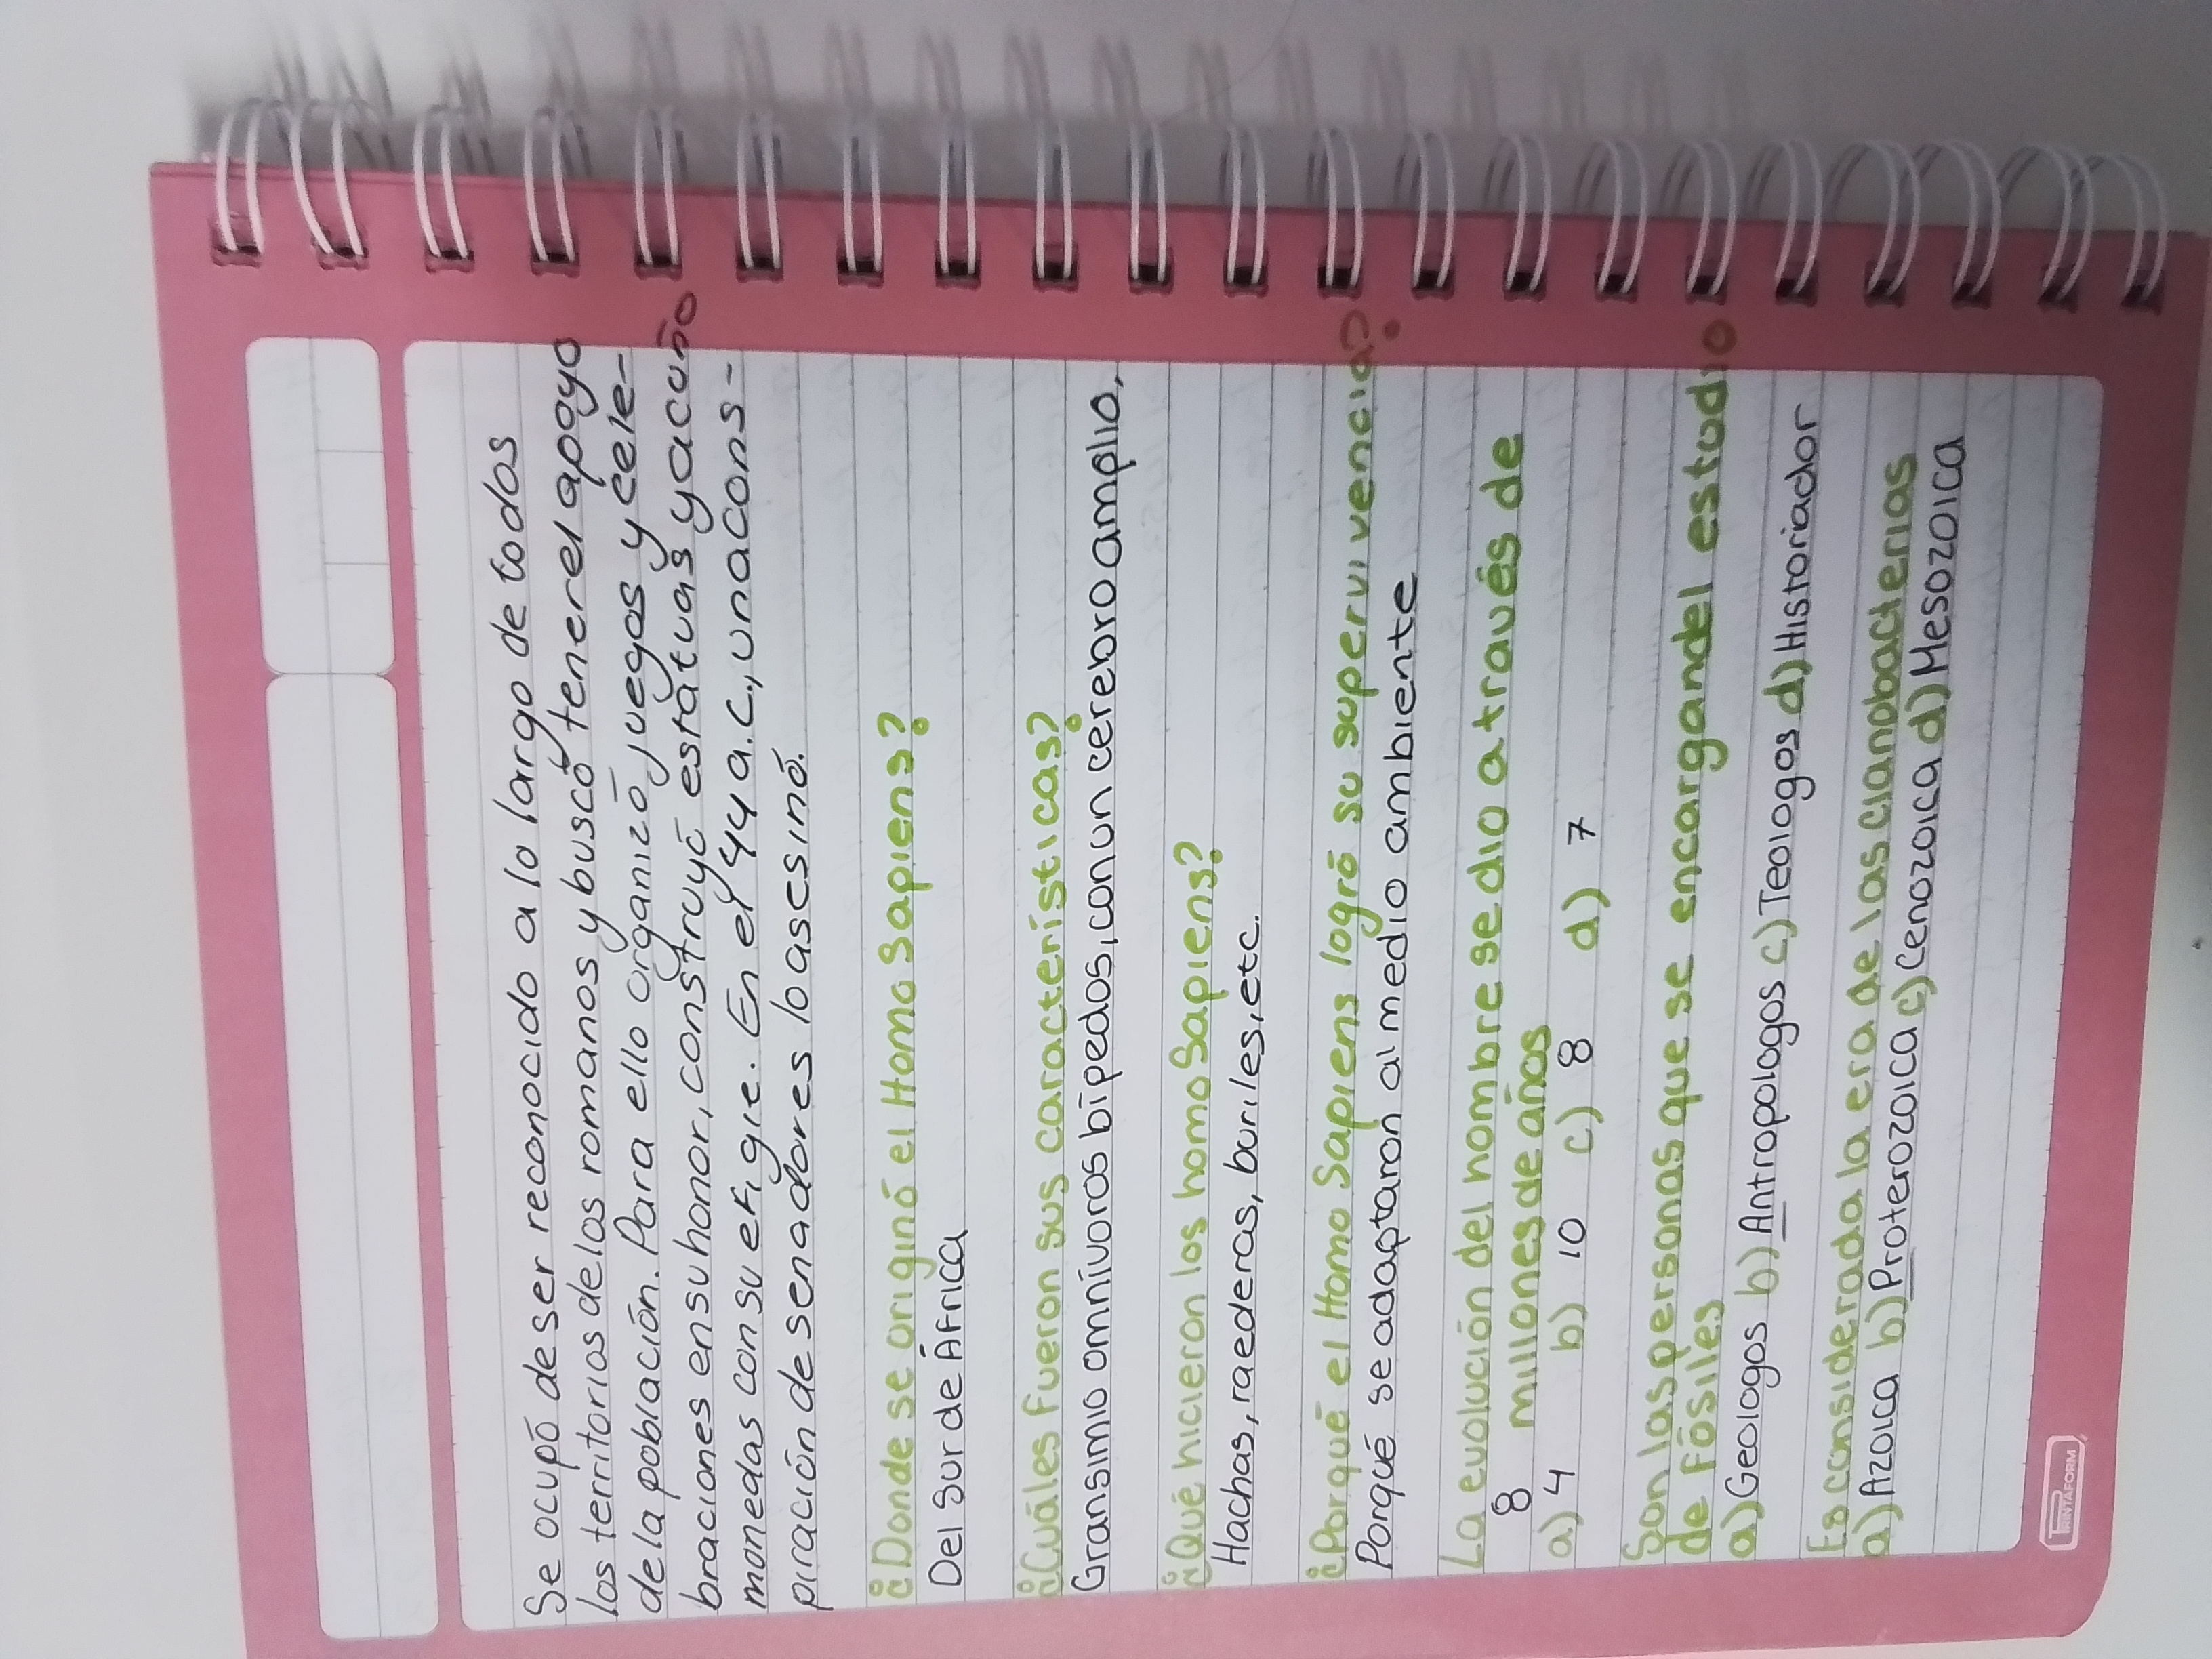 Se ocupó de ser reconocido a lo largo de todos
los territorios de los romanos y buscó tener el apoyo
de la población. Para ello organizó juegos y cele-
braciones en su honor, construyó estatuas y acuño
monedas con su efigie. En el 44 a.c., una cons-
piración de senadores lo asesinó.
¿Donde se originó el Homo Sapiens?
Del Sur de África
¿Cuáles fueron sus características?
Gransimio omnívoros bípedos, con un cerebro amplio,
¿Qué hicieron los homo Sapiens?
Hachas, raederas, buriles, etc.
¿Porqué el Homo Sapiens logró su supervivencia?
Porqué se adaptaron al medio ambiente
La evolución del hombre se dio a través de
8 millones de años
a) 4 b) 10 c) 8 d) 7
Son las personas que se encargan del estudio
de Fósiles
a) Geologos b) Antropologos c) Teologos d) Historiador
Es considerada la era de las cianobacterias
a) Azoica b) Proterozoica c) Cenozoica d) Mesozoica
PRINTAFORM